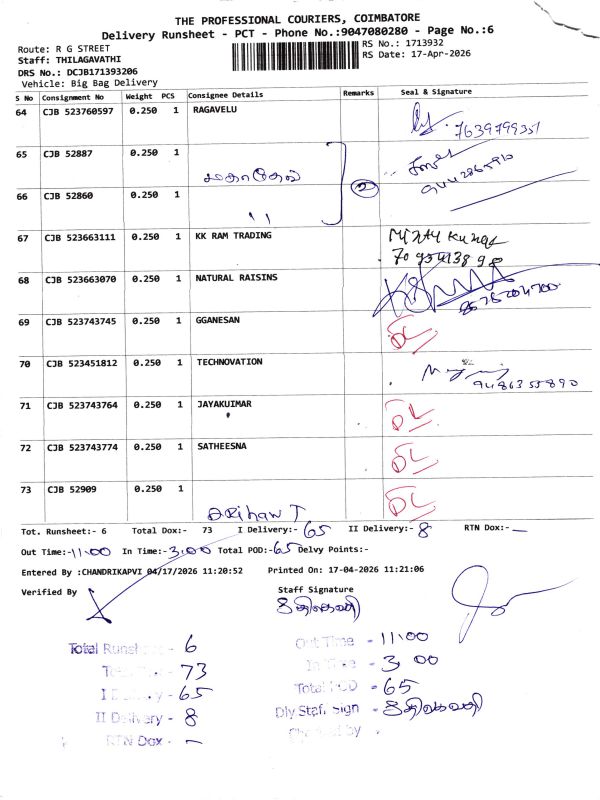 THE PROFESSIONAL COURIERS, COIMBATORE
Delivery Runsheet - PCT - Phone No.:9047080280 - Page No.:6
Route: R G STREET
RS No.: 1713932
Staff: THILAGAVATHI
RS Date: 17-Apr-2026
DRS No.: DCJB171393206
Vehicle: Big Bag Delivery
S No Consignment No Weight PCS Consignee Details Remarks Seal & Signature
64 CJB 523760597 0.250 1 RAGAVELU 7639799351
65 CJB 52887 0.250 1
66 CJB 52860 0.250 1 " 2
67 CJB 523663111 0.250 1 KK RAM TRADING
68 CJB 523663070 0.250 1 NATURAL RAISINS
69 CJB 523743745 0.250 1 GGANESAN DL
70 CJB 523451812 0.250 1 TECHNOVATION 9486355890
71 CJB 523743764 0.250 1 JAYAKUIMAR DL
72 CJB 523743774 0.250 1 SATHEESNA DL
73 CJB 52909 0.250 1 ARihanT DL
Tot. Runsheet:- 6 Total Dox:- 73 I Delivery:- 65 II Delivery:- 8 RTN Dox:- —
Out Time:-11:00 In Time:-3:00 Total POD:-65 Delvy Points:-
Entered By :CHANDRIKAPVI 04/17/2026 11:20:52 Printed On: 17-04-2026 11:21:06
Verified By Staff Signature
Total Runsh - 6
Out Time - 11:00
73
In Time - 3 00
I Delivery - 65
Total POD - 65
II Delivery - 8
Dly Staff Sign -
RTN Dox - —